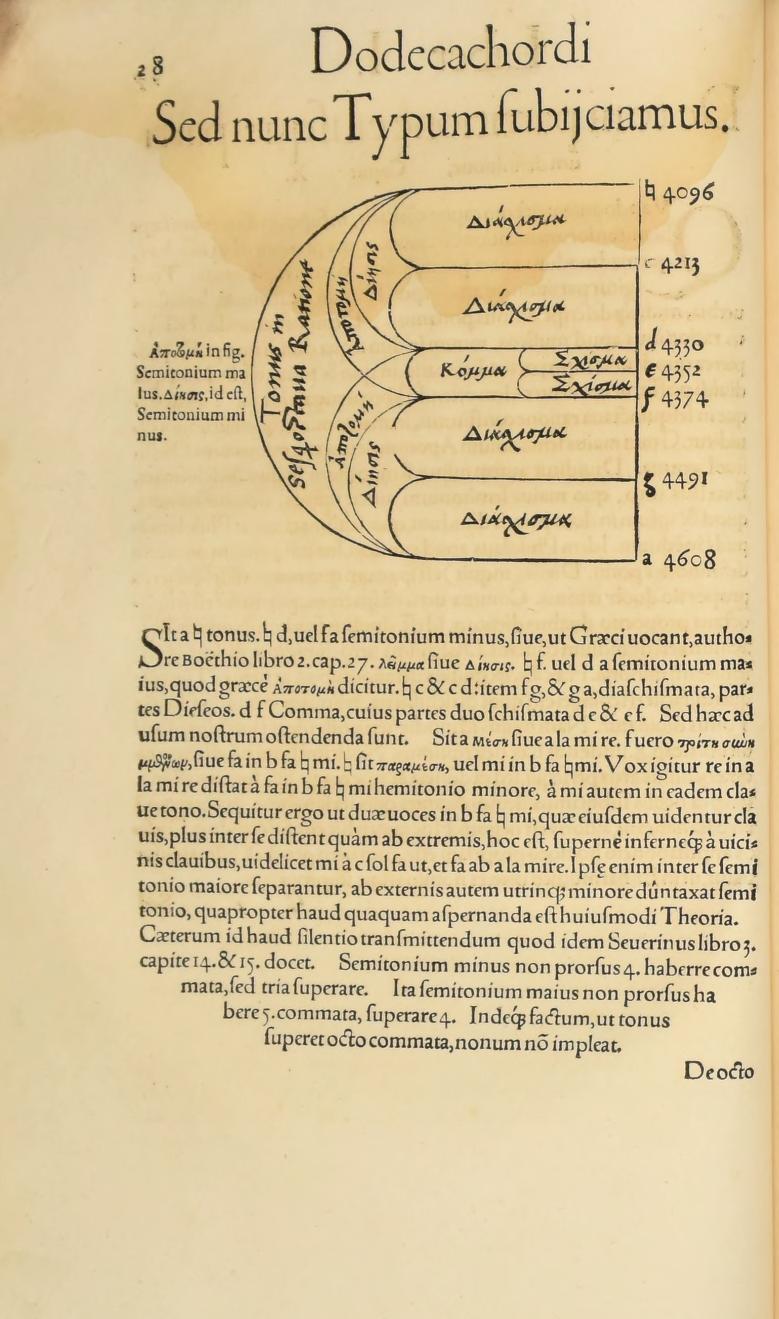 28
Dodecachordi
Sed nunc Typum ſubijciamus.
♮ 4096
Διάχισμα
c 4213
Δίησις
Ἀποτομή
Διάχισμα
Tonus in
Seſquioctaua Ratione
d 4330
Κόμμα
Σχίσμα
e 4352
Σχίσμα
f 4374
Διάχισμα
Ἀποτομή
Δίησις
g 4491
Διάχισμα
a 4608
Ἀποτομὴ in fig.
Semitonium ma
ius. Δίησις, id eſt,
Semitonium mi
nus.
SIt a ♮ tonus. ♮ d, uel f a ſemitonium minus, ſiue, ut Græci uocant, autho⸗
re Boëthio libro 2. cap. 27. λεῖμμα ſiue Δίησις. ♮ f. uel d a ſemitonium ma⸗
ius, quod græcé ἀποτομὴ dicitur. ♮ c & c d: item f g, & g a, diaſchiſmata, par⸗
tes Dieſeos. d f Comma, cuius partes duo ſchiſmata d e & e f. Sed hæc ad
uſum noſtrum oſtendenda ſunt. Sit a μέση ſiue a la mi re. f uero τρίτη
ſiue fa in b fa ♮ mi. ♮ ſit παραμέση, uel mi in b fa ♮ mi. Vox igitur re in a
la mi re diſtat à fa in b fa ♮ mi hemitonio minore, à mi autem in eadem cla⸗
ue tono. Sequitur ergo ut duæ uoces in b fa ♮ mi, quæ eiuſdem uidentur cla
uis, plus inter ſe diſtent quàm ab extremis, hoc eſt, ſupernè inferneq́ꝫ à uici⸗
nis clauibus, uidelicet mi à c ſol fa ut, et fa ab a la mi re. Ipſę enim inter ſe ſemi
tonio maiore ſeparantur, ab externis autem utrinqꝫ minore dúntaxat ſemi
tonio, quapropter haud quaquam aſpernanda eſt huiuſmodi Theoria.
Cæterum id haud ſilentio tranſmittendum quod idem Seuerinus libro 3.
capite 14. & 15. docet. Semitonium minus non prorſus 4. haberre com⸗
mata, ſed tria ſuperare. Ita ſemitonium maius non prorſus ha
bere 5. commata, ſuperare 4. Indeq́ꝫ factum, ut tonus
ſuperet octo commata, nonum nō impleat.
De octo